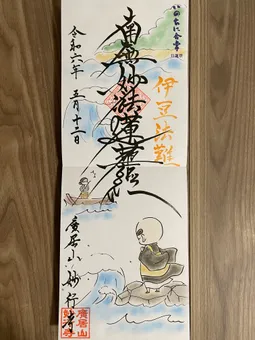 いのちに合掌
伊豆法難
南無妙法蓮華経
令和六年 五月十二日
廣居山 妙行寺
廣居山